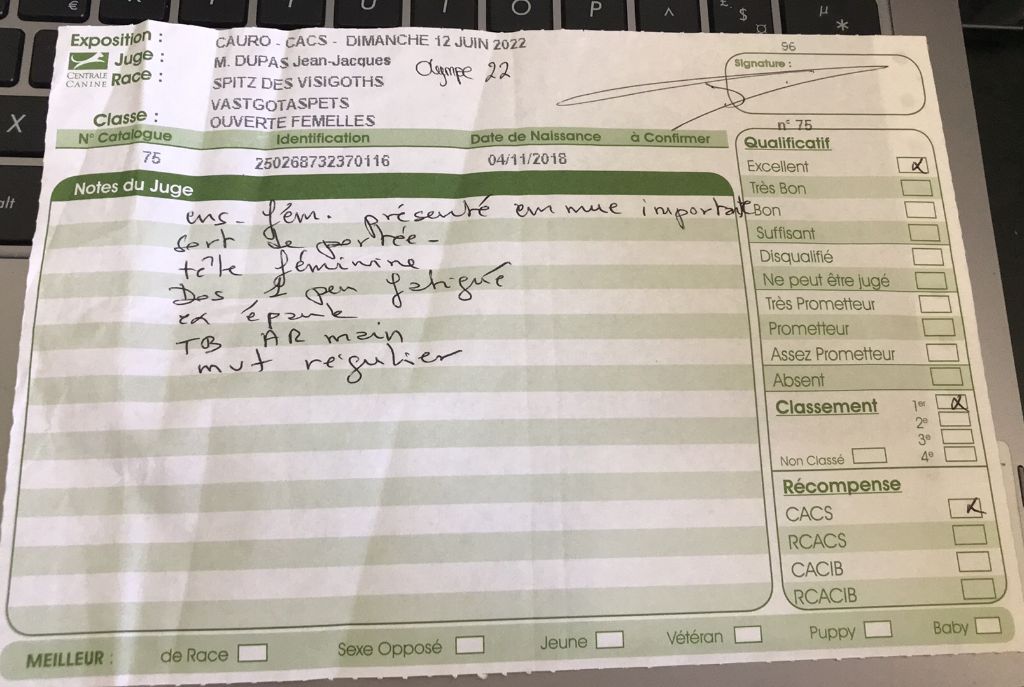 Exposition : CAURO - CACS - DIMANCHE 12 JUIN 2022
96
Juge : M. DUPAS Jean-Jacques
Olympe 22
Signature :
CENTRALE CANINE
Race : SPITZ DES VISIGOTHS
VASTGOTASPETS
Classe : OUVERTE FEMELLES
n° 75
N° Catalogue Identification Date de Naissance à Confirmer
75 250268732370116 04/11/2018
Notes du Juge
ens. fém. présenté en mue importante
sort de portée -
tête féminine
Dos 1 peu fatigué
ex épaule
TB AR main
mvt régulier
Qualificatif
Excellent
Très Bon
Bon
Suffisant
Disqualifié
Ne peut être jugé
Très Prometteur
Prometteur
Assez Prometteur
Absent
Classement 1er
2e
3e
Non Classé 4e
Récompense
CACS
RCACS
CACIB
RCACIB
MEILLEUR : de Race Sexe Opposé Jeune Vétéran Puppy Baby
€ T U O P ^ £ $ ¤ µ *
X
alt